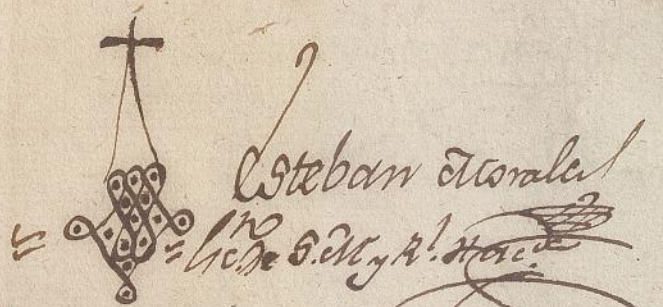 Esteban Morales
Es.no de S. M. y R.l Hac.da